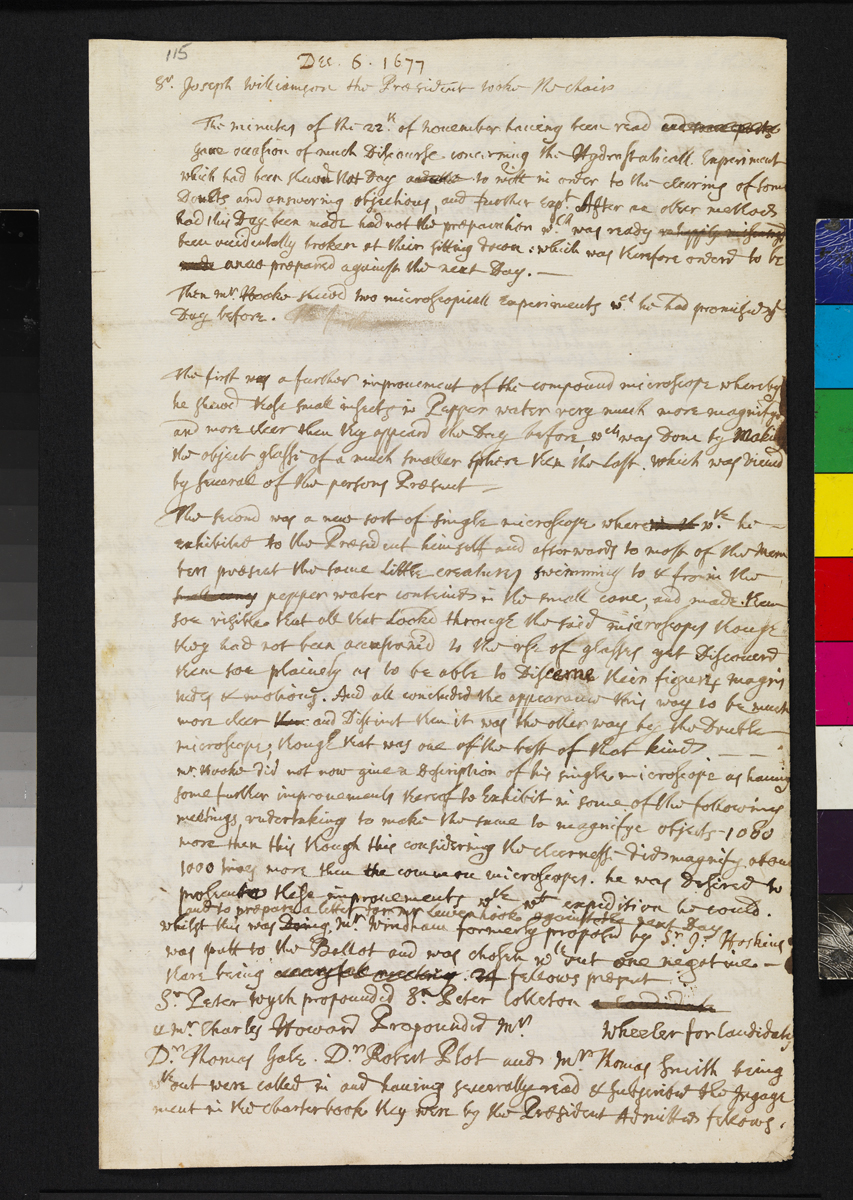 115
Dec. 6. 1677
Sr. Joseph Williamson the Præsident tooke the chair
The minutes of the 22th. of november having been read
gave occasion of much Discourse concerning the Hydrostaticall Experiment
which had been shewd that Day to in order to the cleering of some
Doubts and answering objections, and further Expt. After an other method
had this Day been made had not the præparation wch was ready
been accidentally broken at their sitting down: which was therefore orderd to be
anew præpared against the next Day. —
Then mr. Hooke shewd two microscopicall Experiments wch he had promised ye
Day before.
The first was a further improuement of the compound microscope whereby
he shewd those small insects in Pepper water very much more magnifyd
and more cleer then they appeard the Day before, wch was Done by Making
the object glasse of a much smaller sphere then the last. which was viewd
by seuerall of the persons Præsent —
The second was a new sort of single microscope where wth he —
exhibited to the Præsident himself and afterwards to most of the Mem
bers præsent the same little creatures swimming to & fro in the
pepper water conteined in the small cane, and made them
soe visible that all that Looked through the said microscopes though
they had not been accustomd to the use of glasses yet Discouerd
them soe plainely as to be able to Discerne their figures magni
tudes & motions. And all concluded the appearance this way to be much
more cleer and Distinct then it was the other way by the Double
microscope, though that was one of the best of that kind — — —
mr. Hooke did not now give a Description of his single microscope as having
some further improuements thereof to Exhibit in some of the following
meetings, undertaking to make the same to magnifye objects 1000
more then this though this considering the cleerness did magnify about
1000 times more then the common microscopes. he was desired to
prosecute these improuements wth wt expedition he could.
and to prepare a letter for mr Leuenhook against the next Day
whilst this was Doing, Mr. Windham formerly proposd by Sr. J. Hoskins
was putt to the Ballot and was chosen wthout one negative —
there being 24 fellows præsent
Sr. Peter Wych propounded Sr. Peter Colleton
& mr. Charles Howard Propounded Mr. Wheeler for Candidats
Dr. Thomas Gale. Dr. Robert Plot and Mr. Thomas Smith being
wthout were called in and having seuerally read & subscribed the Ingage
ment in the charter book they were by the Præsident Admitted fellows.